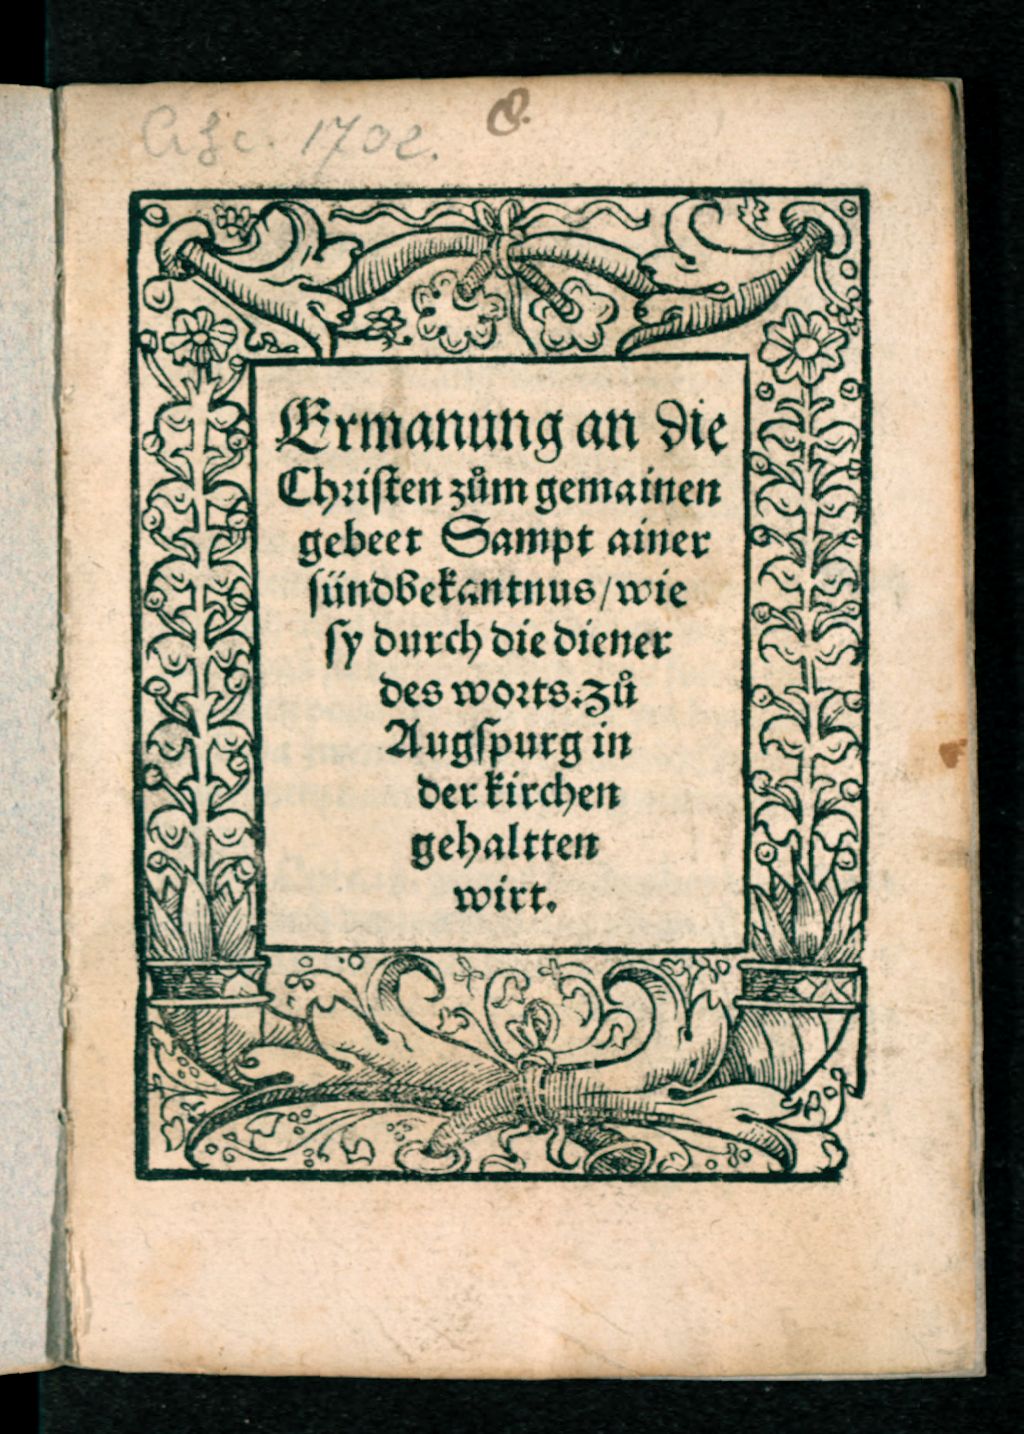 Asc. 1702.
Ermanung an die
Christen zům gemainen
gebeet Sampt ainer
sündbekantnus/wie
sy durch die diener
des worts.zů
Augspurg in
der kirchen
gehaltten
wirt.